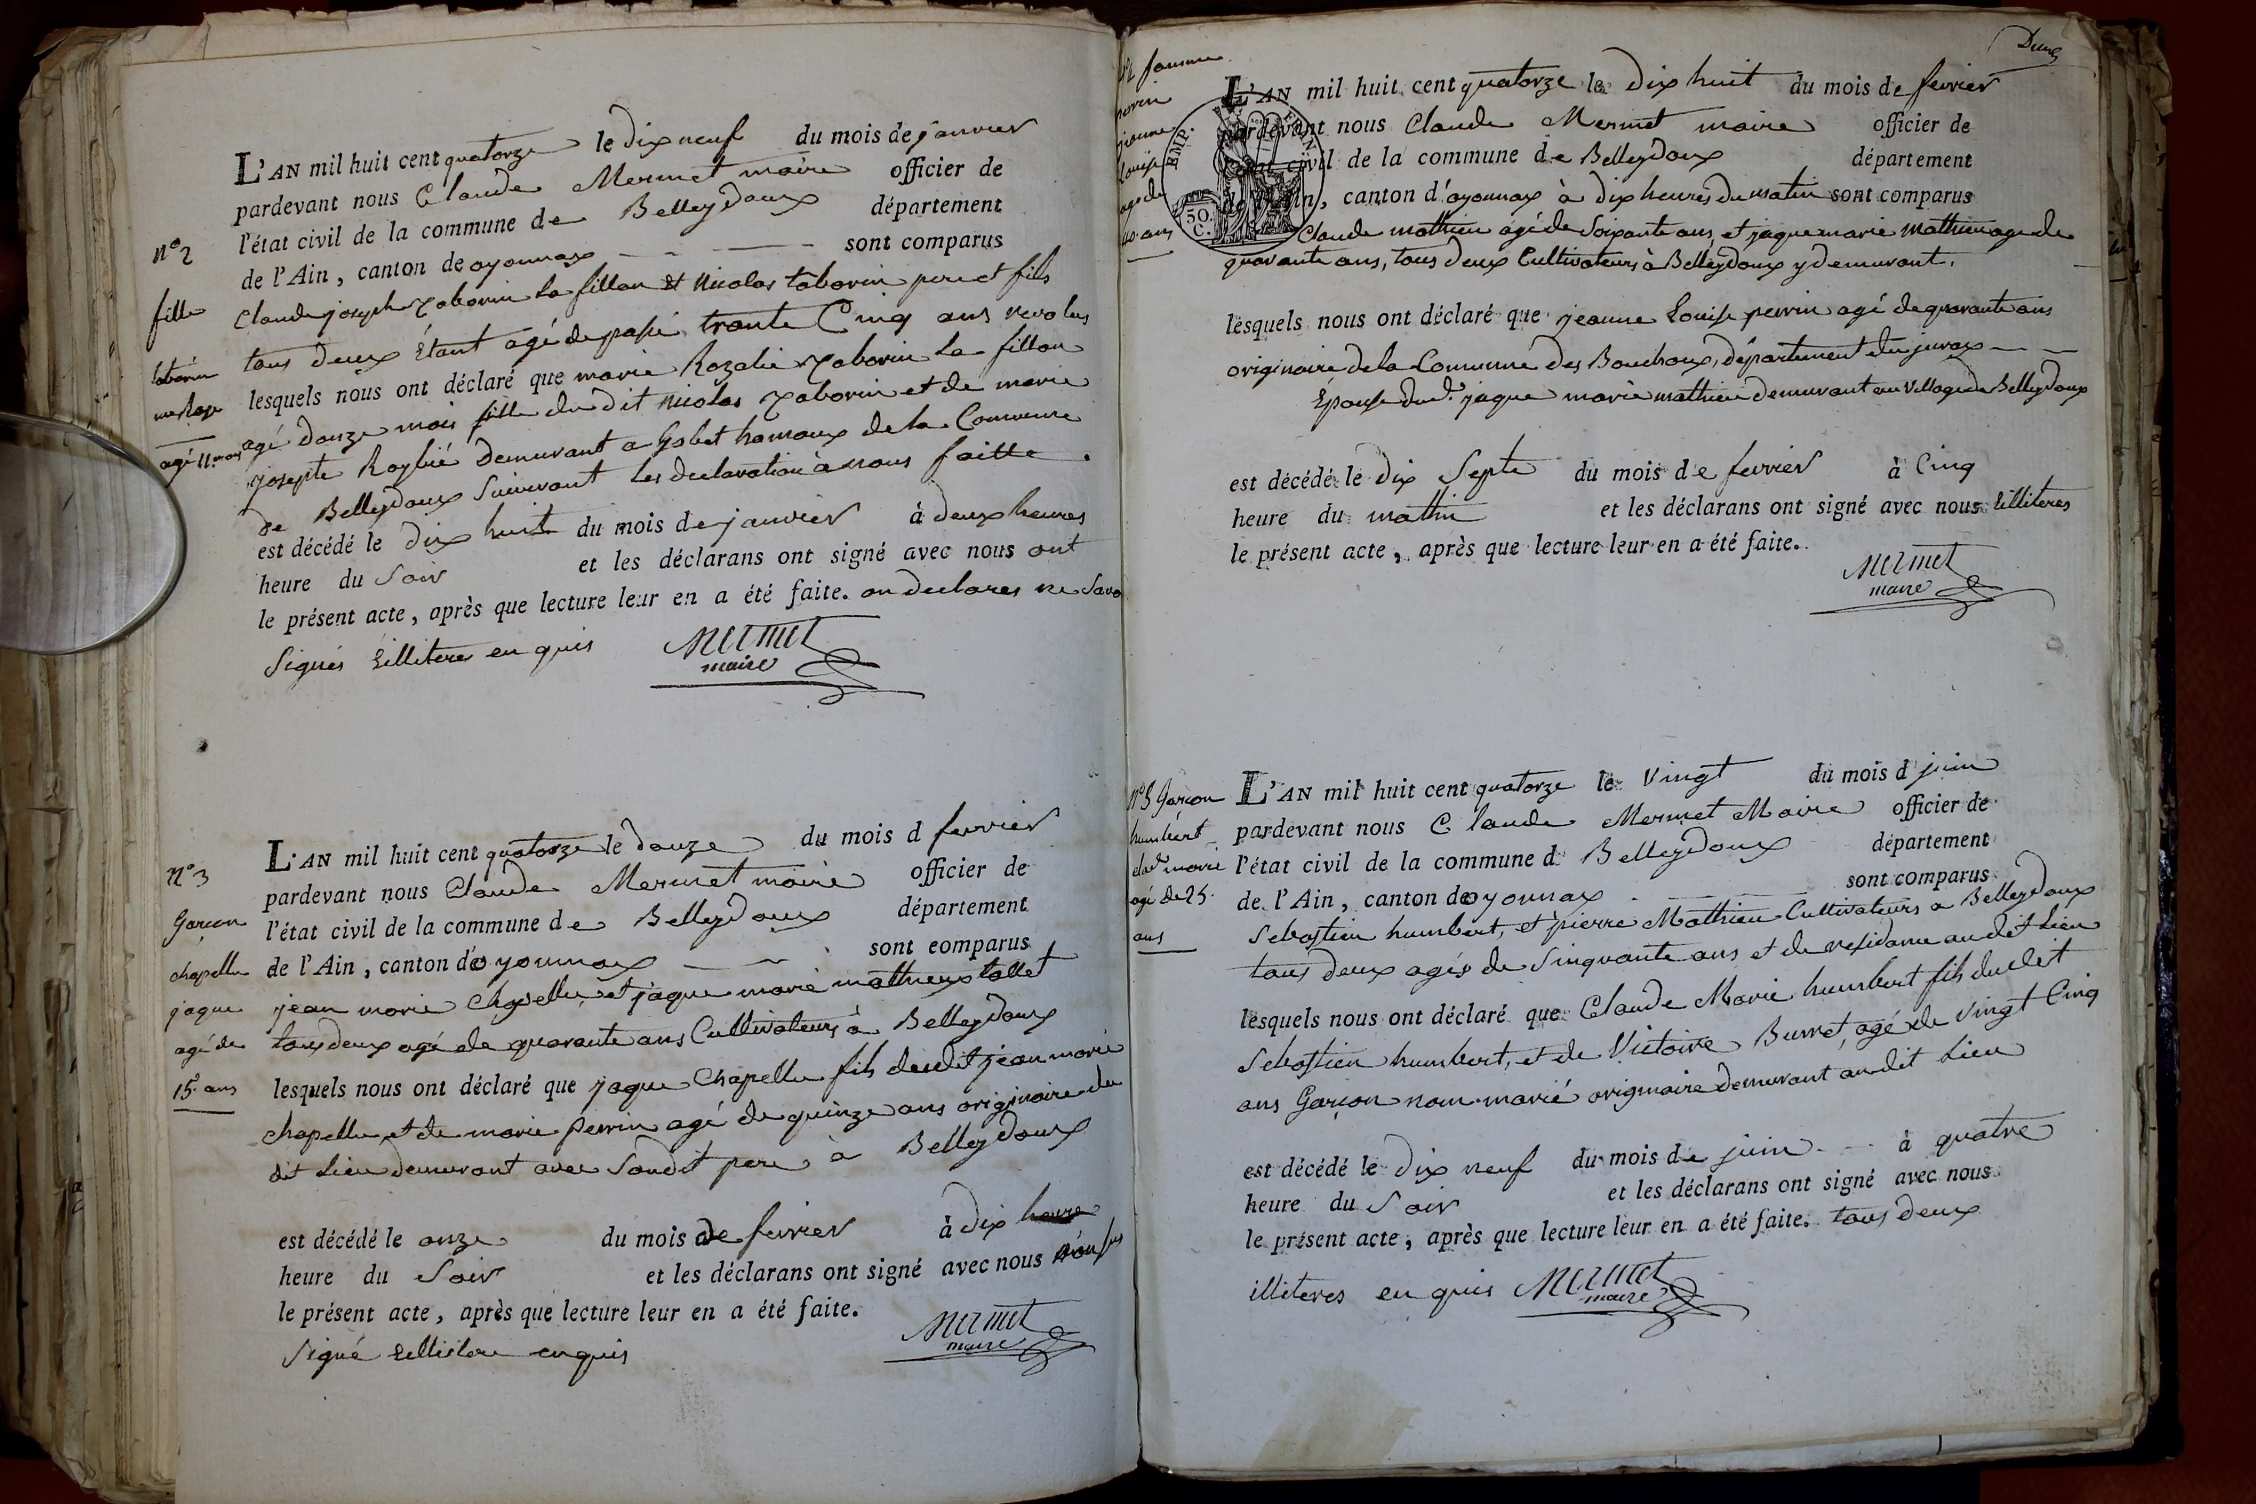 n.º 2
fille
taborin
me Roze
agé 11 mois
L'AN mil huit cent quatorze le dix neuf du mois de janvier
pardevant nous Claude Mermet maire officier de
l'état civil de la commune de Belleydoux département
de l'Ain, canton de oyonnax sont comparus
Claude joseph taborin la fillan et Nicolas taborin pere et fils
tous deux Étant agé de passé trante Cinq ans revolus
lesquels nous ont déclaré que marie Rozalie taborin la fillon
agé donze mois fille du dit Nicolas taborin et de marie
josepte demurant a Gobet hamaux de la Commune
de Belleydoux Suivant les declaration à nous faitte
est décédé le dix huit du mois de janvier à deux heures
heure du Soir et les déclarans ont signé avec nous ont
le présent acte, après que lecture leur en a été faite. on declares ne Savo
Signés illiteres en quis
Mermet
maire
N.º 3
Garcon
chapellu
jaque
agé de
15 ans
L'AN mil huit cent quatorze le douze du mois d fevrier
pardevant nous Claude Mermet maire officier de
l'état civil de la commune de Belleydoux département
de l'Ain, canton d'oyonnax sont comparus
jean marie chapellu et jaque marie mathieux tallet
tous deux agé de quarante ans Cultivateurs à Belleydoux
lesquels nous ont déclaré que jaque Chapellu fils dudit jean marie
chapellu et de marie perrin agé de quinze ans originaire du
dit Lieu demurant avec Sondit pere à Belleydoux
est décédé le onze du mois de fevrier à dix heure
heure du Soir et les déclarans ont signé avec nous
le présent acte, après que lecture leur en a été faite.
Signé enquis
Mermet
maire
Deux
femme
perrin
jeanne
Louise
age de
40 ans
EMP.
50.
C.
L'AN mil huit cent quatorze le dix huit du mois de fevrier
pardevant nous Claude Mermet maire officier de
l'état civil de la commune de Belleydoux département
de l'Ain, canton d'oyonnax à dix heures du matin sont comparus
Claude mathieu agé de Soixante ans, et jaque marie mathieu age de
quarante ans, tous deux Cultivateurs à Belleydoux y demurant.
lesquels nous ont déclaré que jeanne Louise perrin agé de quarante ans
originaire de la Commune des Bouchoux, département du jurax
Épouse dud.t jaque marie mathieu demurant au village de Belleydoux
est décédé le dix Septe du mois de fevrier à Cinq
heure du mattin et les déclarans ont signé avec nous illiteres
le présent acte, après que lecture leur en a été faite.
Mermet
maire
N.º 5 Garcon
humbert
clad.e marie
agé de 25
ans
L'AN mil huit cent quatorze le Vingt du mois d juin
pardevant nous Claude Mermet Maire officier de
l'état civil de la commune d Belleydoux département
de l'Ain, canton d'oyonnax sont comparus
Sebastien humbert, et pierre Mathieu Cultivateurs a Belleydoux
tous deux agés de Sinquante ans et de residance audit Lieu
lesquels nous ont déclaré que Claude Marie humbert fils dudit
Sebastien humbert, et de Victoire Burret, agé de Vingt Cinq
ans Garçon nom marié originaire demurant audit Lieu
est décédé le dix neuf du mois de juin à quatre
heure du Soir et les déclarans ont signé avec nous
le présent acte, après que lecture leur en a été faite. tous deux
illiteres en quis
Mermet
maire